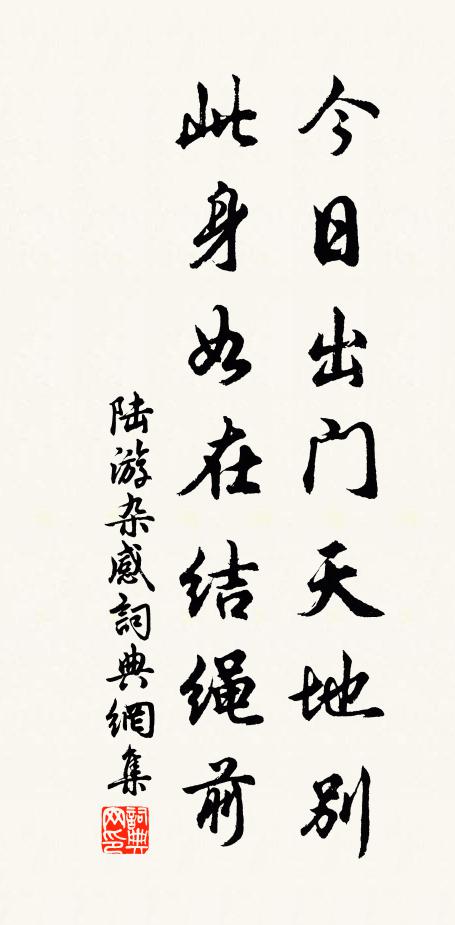 今日出门天地别
此身如在结绳前
陆游杂感詞典網集
詞典
网印